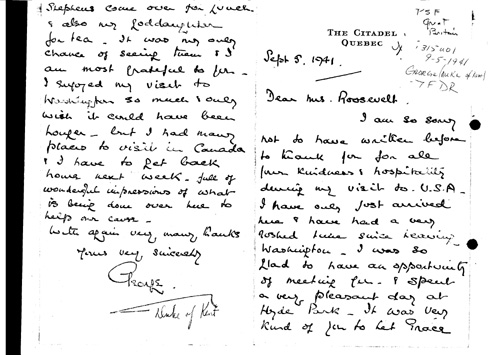 THE CITADEL
QUEBEC
Sept 5. 1941.
Dear Mrs. Roosevelt.
I am so sorry
not to have written before
to thank you for all
your kindness & hospitality
during my visit to U.S.A.
I have only just arrived
here & have had a very
rushed time since leaving
Washington. I was so
glad to have an opportunity
of meeting you. & spent
a very pleasant day at
Hyde Park. It was very
kind of you to let Grace
Stephens come over for lunch
& also my Goddaughter
for tea. It was my only
chance of seeing them & I
am most grateful to you.
I enjoyed my visit to
Washington so much & only
wish it could have been
longer – but I had many
places to visit in Canada
& I have to get back
home next week – full of
wonderful impressions of what
is being done over here to
help our cause –
With again very many thanks
Yours very sincerely
George
Duke of Kent
PSF
Great
Britain
9-5-1941
George, Duke of Kent
- FDR